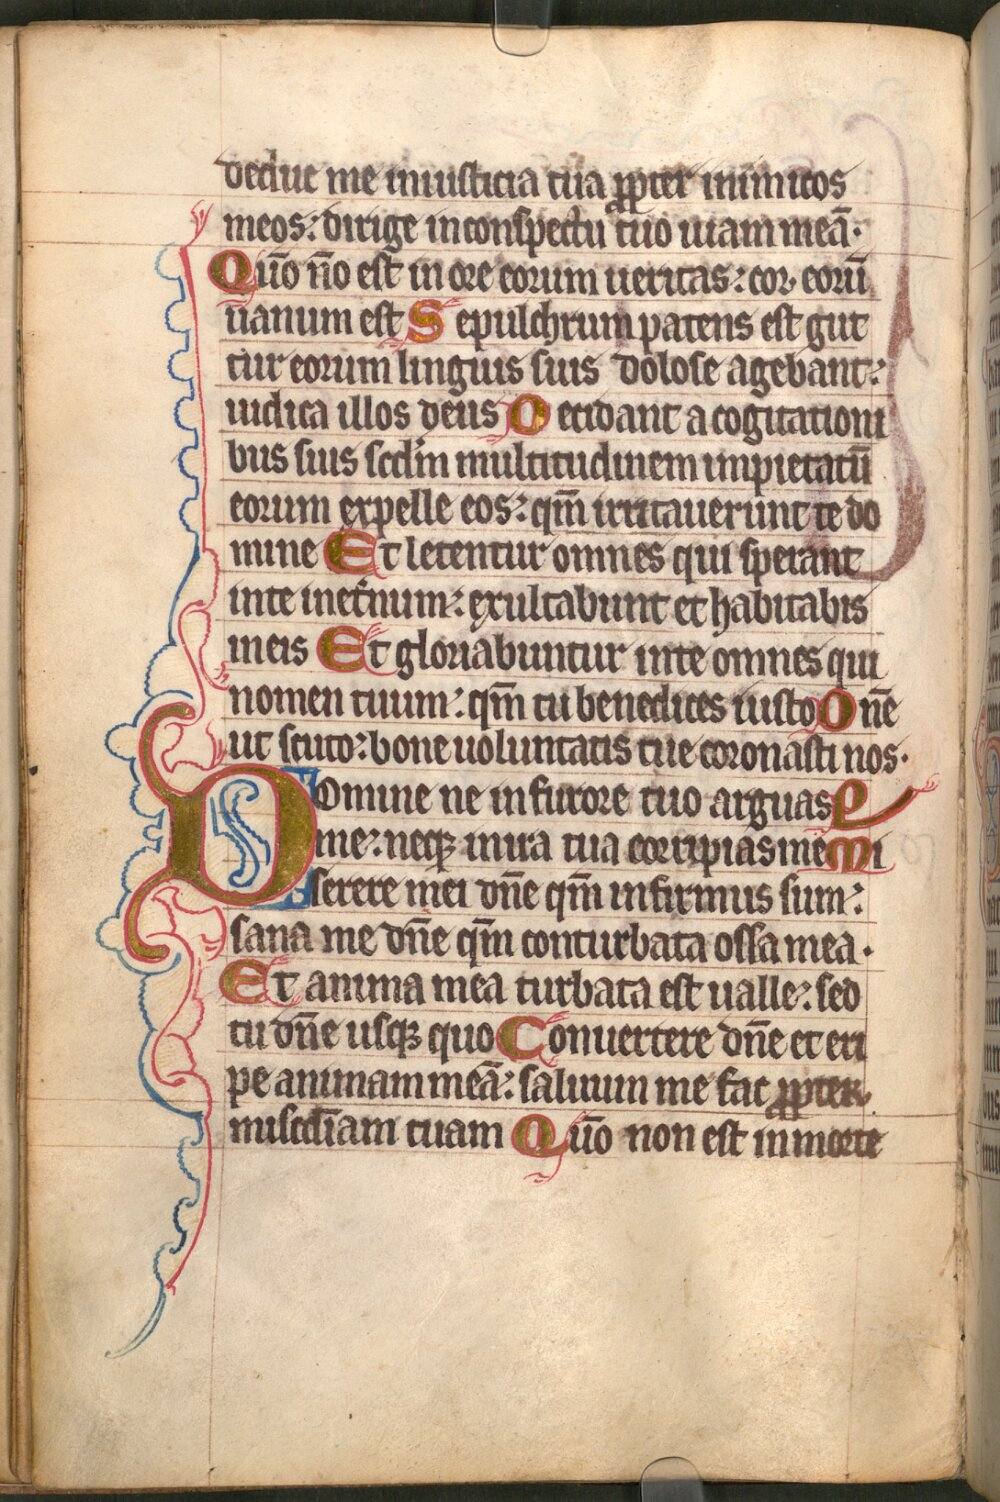 deduc me iniusticia tua ꝓpter inimicos
meos: dirige inconspectu tuo uiam meā.
Quō nō est in ore eorum ueritas: cor eorū
uanum est Sepulchrum patens est gut
tur eorum linguis suis dolose agebant:
iudica illos deus Decidant a cogitationi
bus suis scdm̄ multitudinem impietatū
eorum expelle eos: qm̄ irritauerunt te do
mine Et letentur omnes qui sperant
inte inet̄num: exultabunt et habitabis
ineis Et gloriabuntur inte omnes qui
nomen tuum: qm̄ tu benedices iusto Dn̄e
ut scuto: bone uoluntatis tue coronasti nos.
Domine ne in furore tuo arguas
me: neqꝫ inira tua corripias me Mi
serere mei dn̄e qm̄ infirmus sum:
sana me dn̄e qm̄ conturbata ossa mea.
Et anima mea turbata est ualle: sed
tu dn̄e usqꝫ quo Conuertere dn̄e et eri
pe animam meā: saluum me fac ꝓpter
miscd̄iam tuam Quō non est in morte